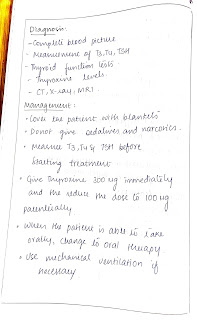 Diagnosis:
- Complete blood picture
- Measurement of T3, T4, TSH
- Thyroid function tests.
- Thyroxine levels.
- CT, X-ray, MRI.
Management:
• Cover the patient with blankets
• Donot give sedatives and narcotics.
• Measure T3, T4 & TSH before
starting treatment
• Give thyroxine 300 ug immediately
and the reduce the dose to 100 ug
parentically
• When the patient is able to take
orally, change to oral therapy
• Use mechanical ventilation if
necessary